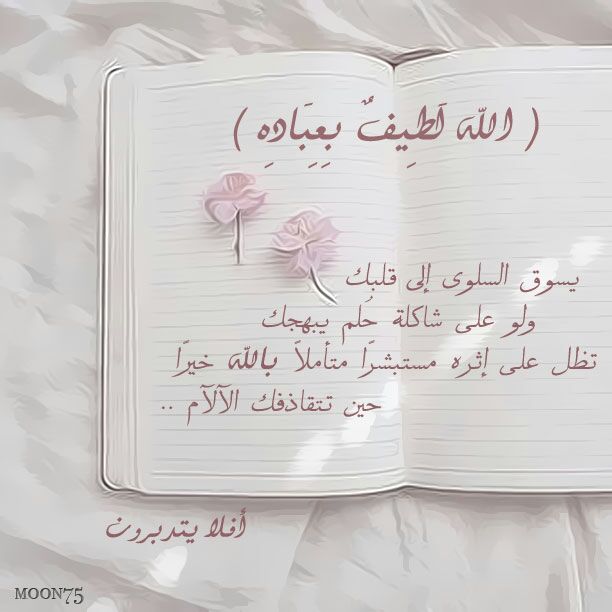 ( اللَّه لَطِيفٌ بِعِبَادِهِ )
يسوق السلوى إلى قلبك
ولو على شاكلة حُلم يبهجك
تظل على إثره مستبشرًا متأملاً بالله خيرًا
حين تتقاذفك الآلآم ..
أفلا يتدبرون
MOON75